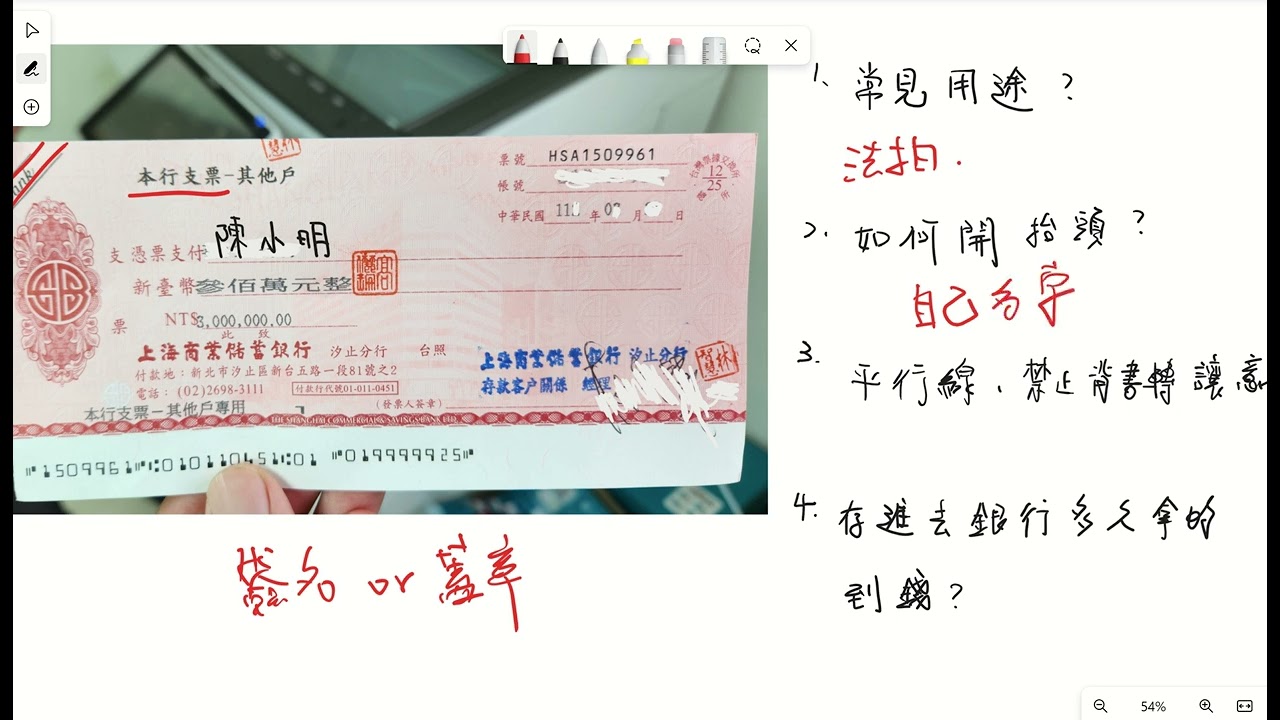 本行支票-其他戶
票號 HSA1509961
帳號
中華民國 年 月 日
12
25
憑票支付 陳小明
支
新臺幣參佰萬元整
票
NT$3,000,000.00
此致
上海商業儲蓄銀行 汐止分行 台照
付款地：新北市汐止區新台五路一段81號之2
電話：(02)2698-3111 付款行代號01-011-0451
本行支票-其他戶專用
(發票人簽章)
上海商業儲蓄銀行 汐止分行
存款客戶關係 經理
THE SHANGHAI COMMERCIAL & SAVINGS BANK LTD.
⑈1509961⑈⑆010110451⑆01 ⑈019999925⑈
簽名 or 蓋章
1. 常見用途？
法拍.
2. 如何開抬頭？
自己名字
3. 平行線、禁止背書轉讓意
4. 存進去銀行多久拿的
到錢？
54%